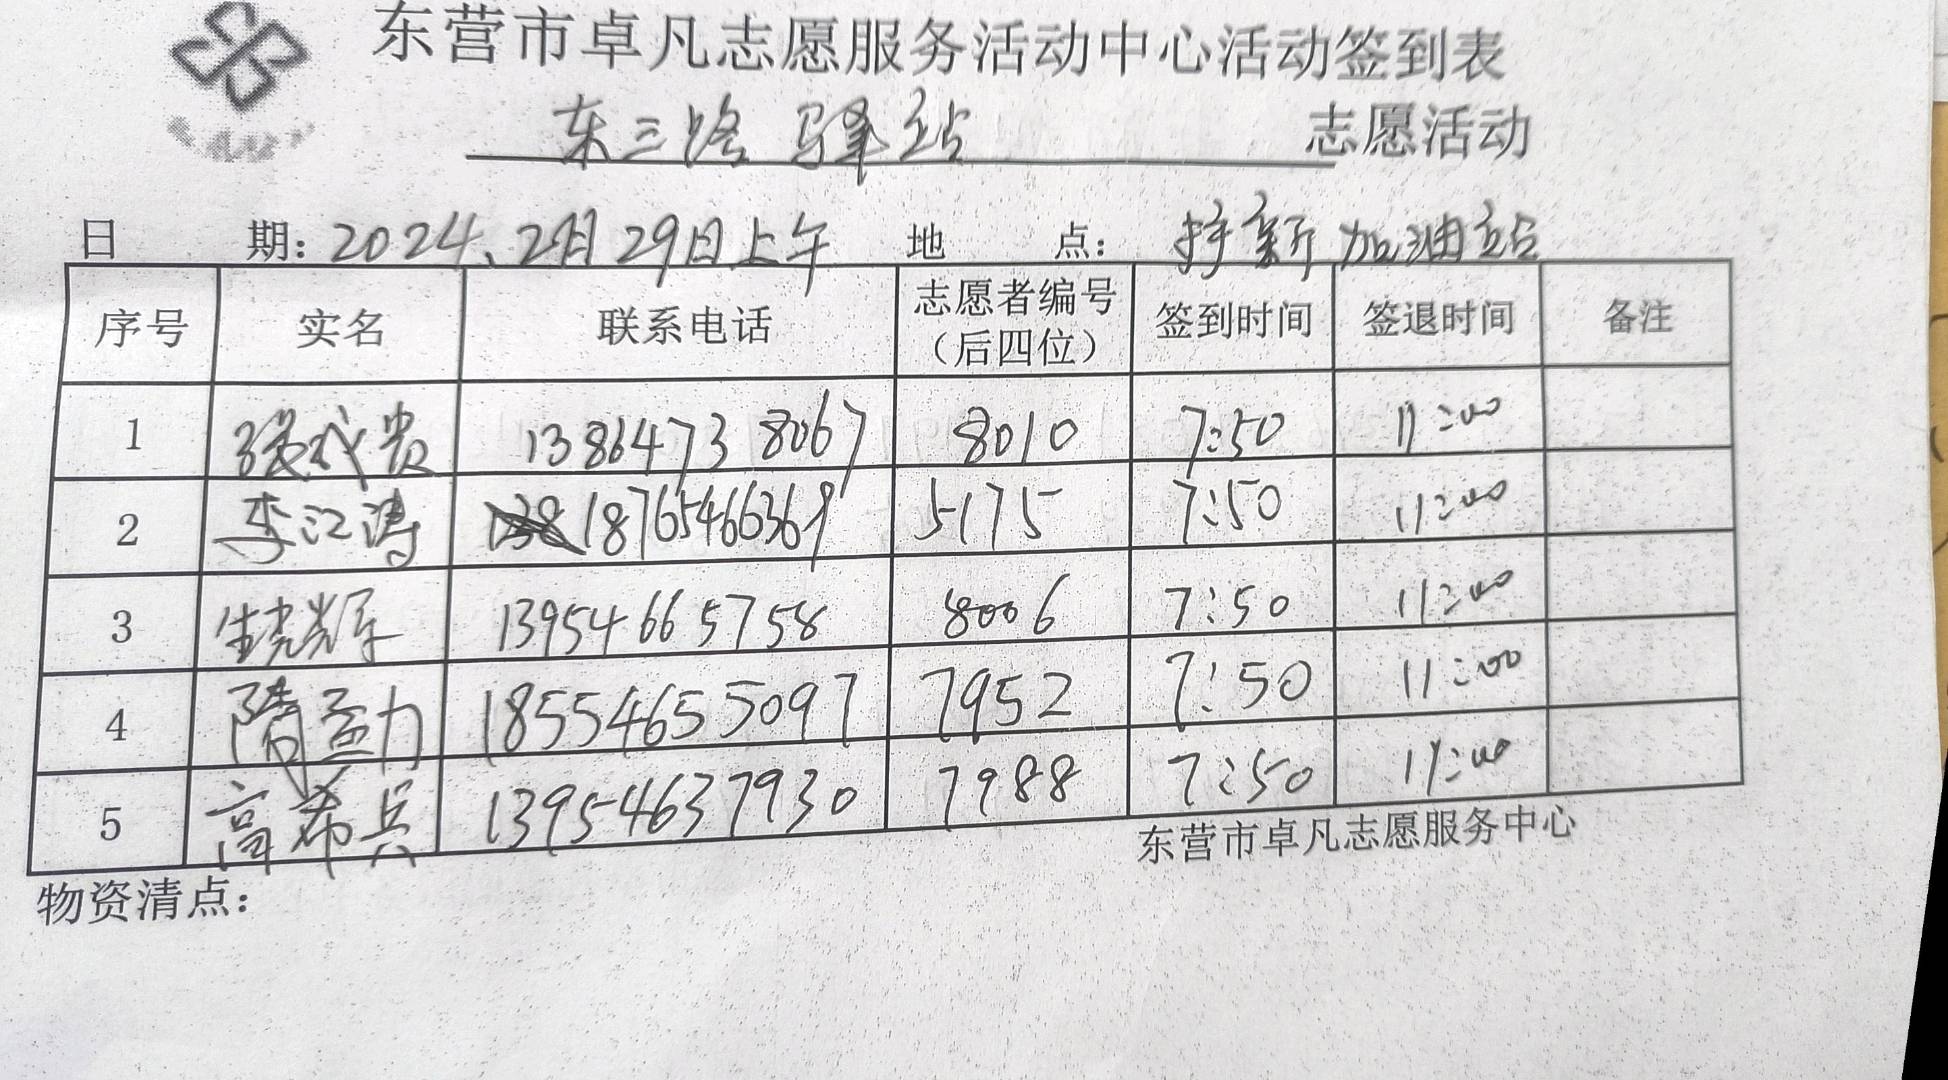 东营市卓凡志愿服务活动中心活动签到表
东三路 驿站 志愿活动
日 期：2024、2月29日上午 地 点： 持新加油站
序号 实名 联系电话 志愿者编号（后四位） 签到时间 签退时间 备注
1 张成贵 13864738067 8010 7:50 11:00
2 李江涛 18765466369 5175 7:50 11:00
3 13954665758 8006 7:50 11:00
4 隋孟力 18554655097 7952 7:50 11:00
5 高希兵 13954637930 7988 7:50 11:00
东营市卓凡志愿服务中心
物资清点：